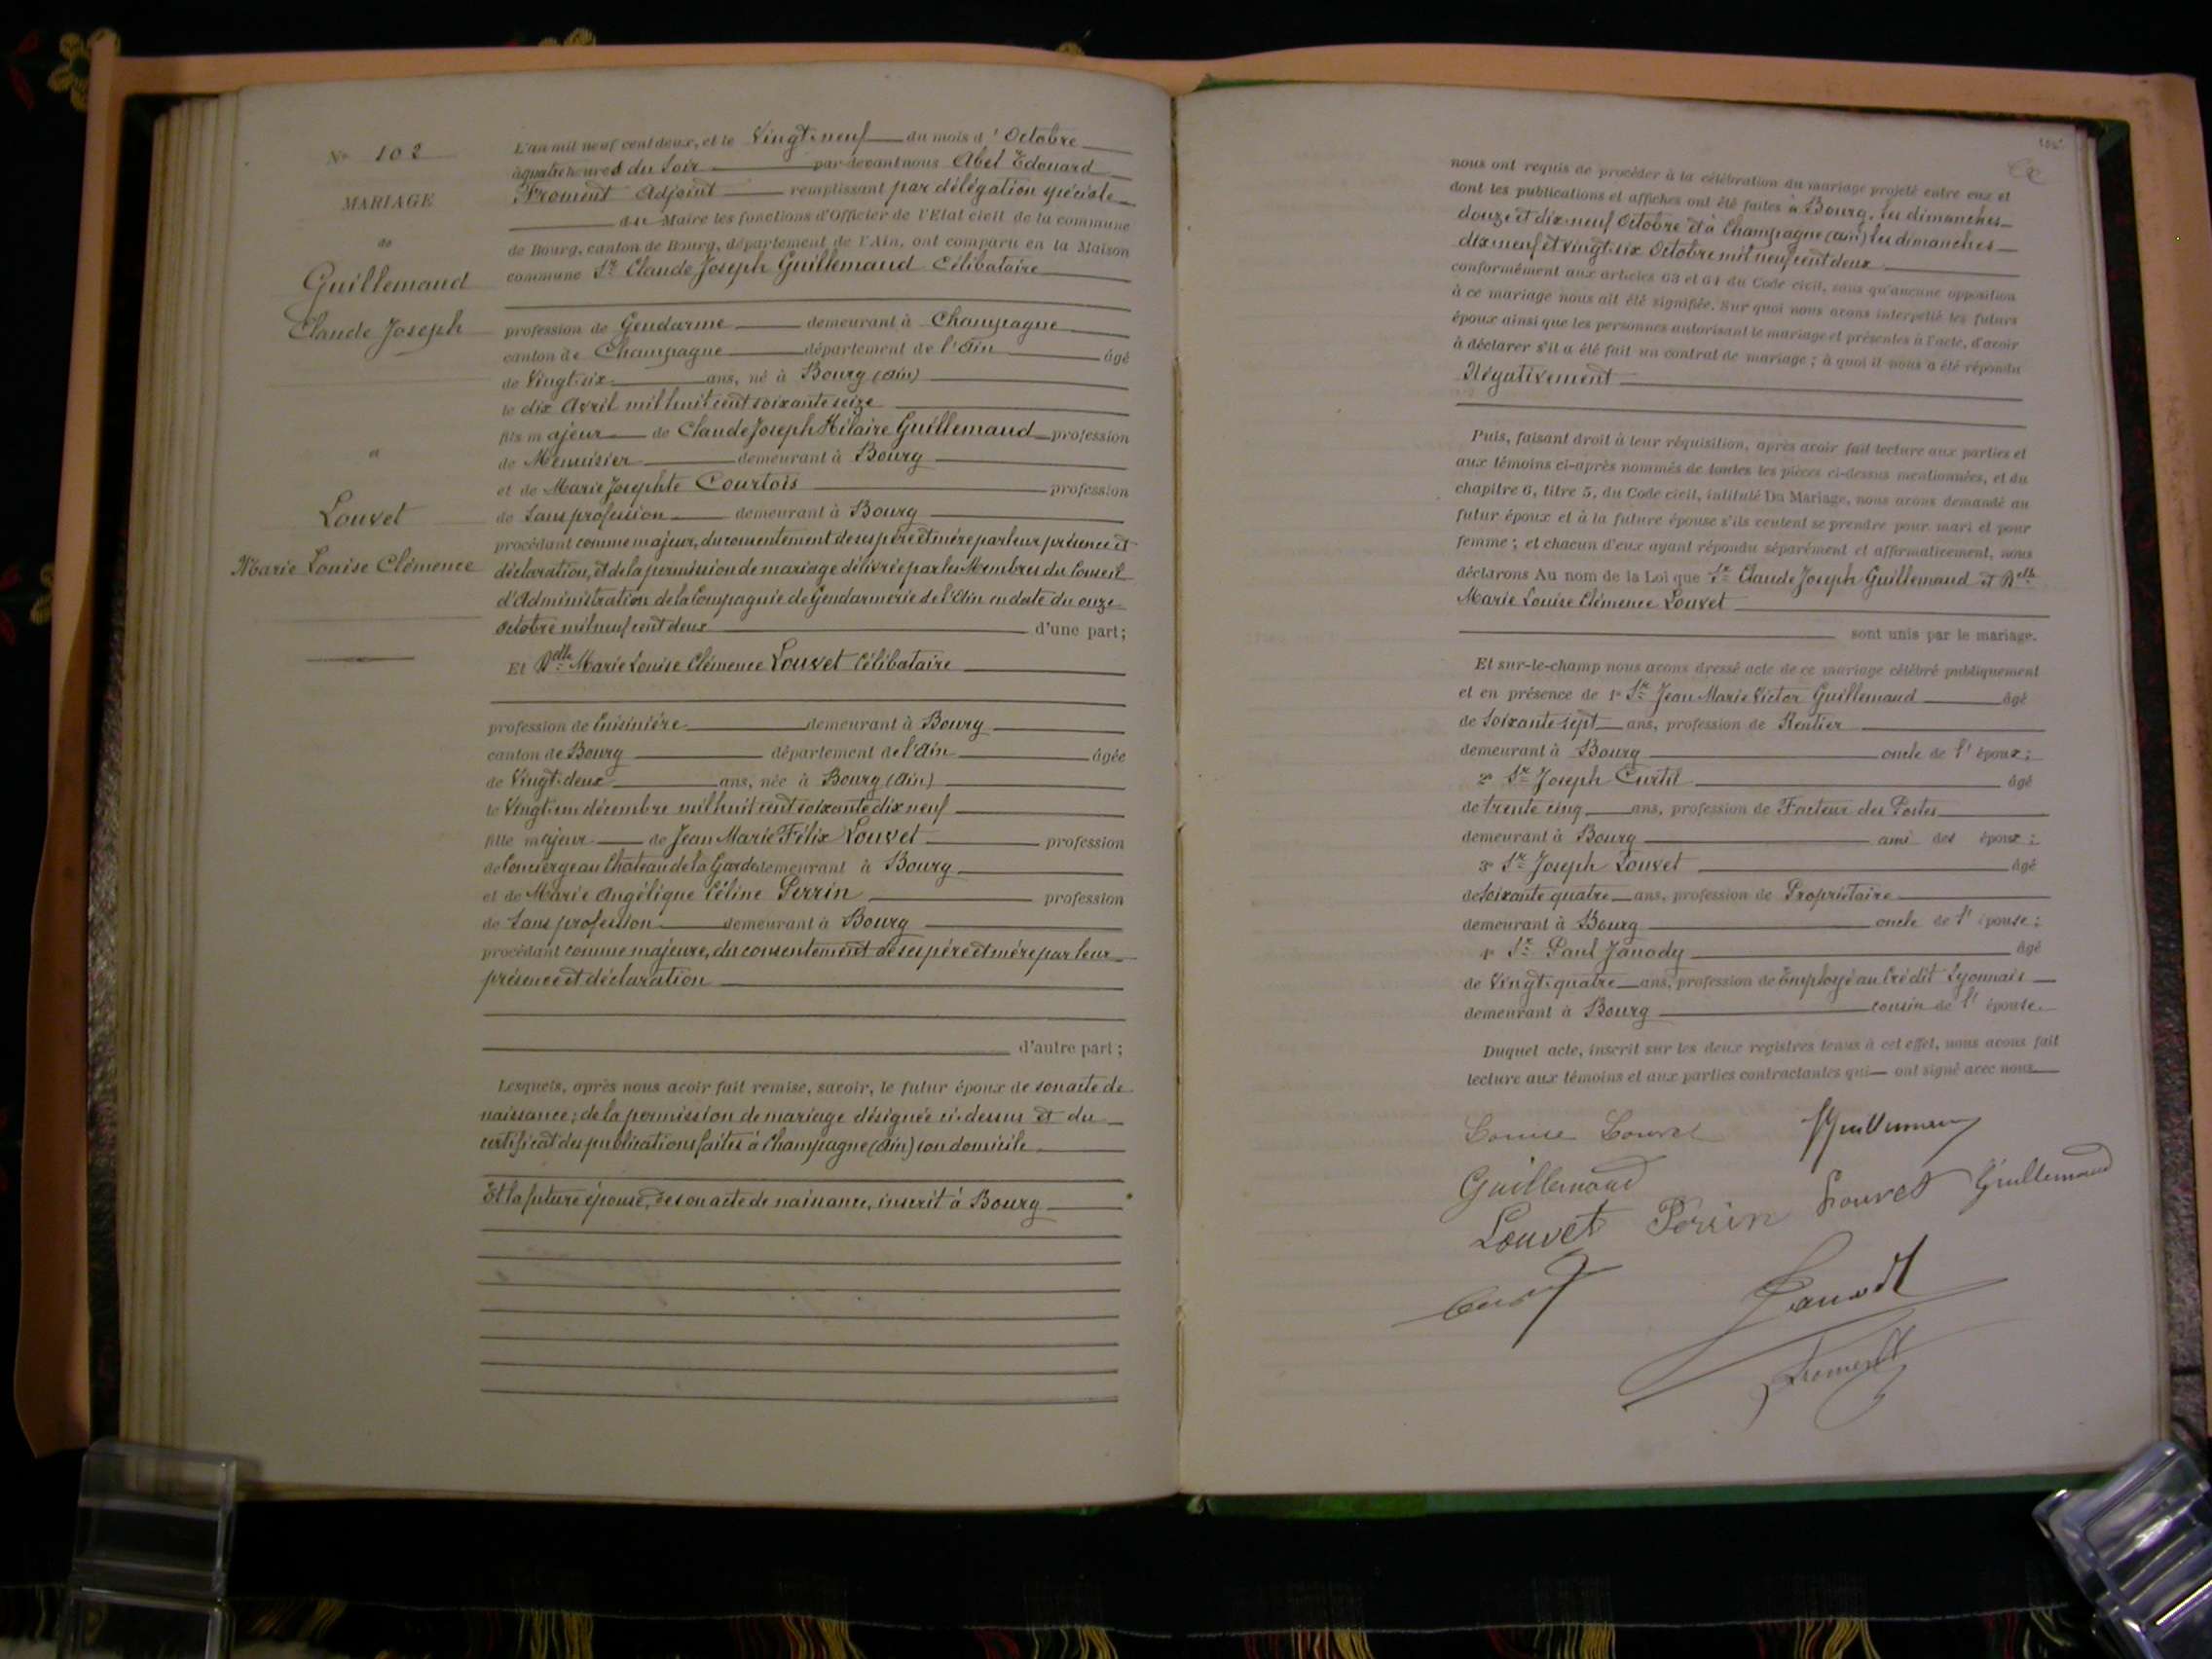 N° 102
MARIAGE
de
Guillemaud
Claude Joseph
et
Louvet
Marie Louise Clémence
L'an mil neuf cent deux, et le Vingt-neuf du mois d'Octobre
à quatre heures du Soir par-devant nous Abel Edouard
Froment Adjoint remplissant par délégation spéciale
du Maire les fonctions d'Officier de l'Etat civil de la commune
de Bourg, canton de Bourg, département de l'Ain, ont comparu en la Maison
commune Sr Claude Joseph Guillemaud Célibataire
profession de Gendarme demeurant à Champagne
canton de Champagne département de l'Ain âgé
de Vingt-six ans, né à Bourg (Ain)
le dix Avril mil huit cent soixante seize
fils majeur de Claude Joseph Hilaire Guillemaud profession
de Menuisier demeurant à Bourg
et de Marie Josephte Courtois profession
de Sans profession demeurant à Bourg
procédant comme majeur, du consentement de ses père et mère par leur présence et
déclaration, et de la permission de mariage délivrée par les Membres du Conseil
d'Administration de la Compagnie de Gendarmerie de l'Ain en date du onze
Octobre mil neuf cent deux d'une part;
Et Delle Marie Louise Clémence Louvet Célibataire
profession de Cuisinière demeurant à Bourg
canton de Bourg département de l'Ain âgée
de Vingt-deux ans, née à Bourg (Ain)
le Vingt-un décembre mil huit cent soixante dix neuf
fille majeur de Jean Marie Félix Louvet profession
de Concierge au Chateau de la Garde demeurant à Bourg
et de Marie Angélique Céline Perrin profession
de Sans profession demeurant à Bourg
procédant comme majeure, du consentement de ses père et mère par leur
présence et déclaration
d'autre part;
Lesquels, après nous avoir fait remise, savoir, le futur époux de son acte de
naissance; de la permission de mariage désignée ci-dessus et du
certificat des publications faites à Champagne (Ain) son domicile
Et la future épouse, de son acte de naissance, inscrit à Bourg
nous ont requis de procéder à la célébration du mariage projeté entre eux et
dont les publications et affiches ont été faites à Bourg, les dimanches
douze et dix-neuf Octobre et à Champagne (Ain) les dimanches
dix neuf et vingt-six Octobre mil neuf cent deux
conformément aux articles 63 et 64 du Code civil, sans qu'aucune opposition
à ce mariage nous ait été signifiée. Sur quoi nous avons interpellé les futurs
époux ainsi que les personnes autorisant le mariage et présentes à l'acte, d'avoir
à déclarer s'il a été fait un contrat de mariage; à quoi il nous a été répondu
Négativement
Puis, faisant droit à leur réquisition, après avoir fait lecture aux parties et
aux témoins ci-après nommés de toutes les pièces ci-dessus mentionnées, et du
chapitre 6, titre 5, du Code civil, intitulé Du Mariage, nous avons demandé au
futur époux et à la future épouse s'ils veulent se prendre pour mari et pour
femme; et chacun d'eux ayant répondu séparément et affirmativement, nous
déclarons Au nom de la Loi que Sr Claude Joseph Guillemaud et Delle
Marie Louise Clémence Louvet
sont unis par le mariage.
Et sur-le-champ nous avons dressé acte de ce mariage célébré publiquement
et en présence de 1° Sr Jean Marie Victor Guillemaud âgé
de Soixante sept ans, profession de Rentier
demeurant à Bourg oncle de l'époux;
2° Sr Joseph Curtil âgé
de trente cinq ans, profession de Facteur des Postes
demeurant à Bourg ami des époux;
3° Sr Joseph Louvet âgé
de Soixante quatre ans, profession de Propriétaire
demeurant à Bourg oncle de l'épouse;
4° Sr Paul Janody âgé
de Vingt-quatre ans, profession de Employé au Crédit Lyonnais
demeurant à Bourg cousin de l'épouse
Duquel acte, inscrit sur les deux registres tenus à cet effet, nous avons fait
lecture aux témoins et aux parties contractantes qui ont signé avec nous
Louise Louvet Guillemaud
Guillemaud
Louvet Perrin Louvet Guillemaud
Janody
Froment